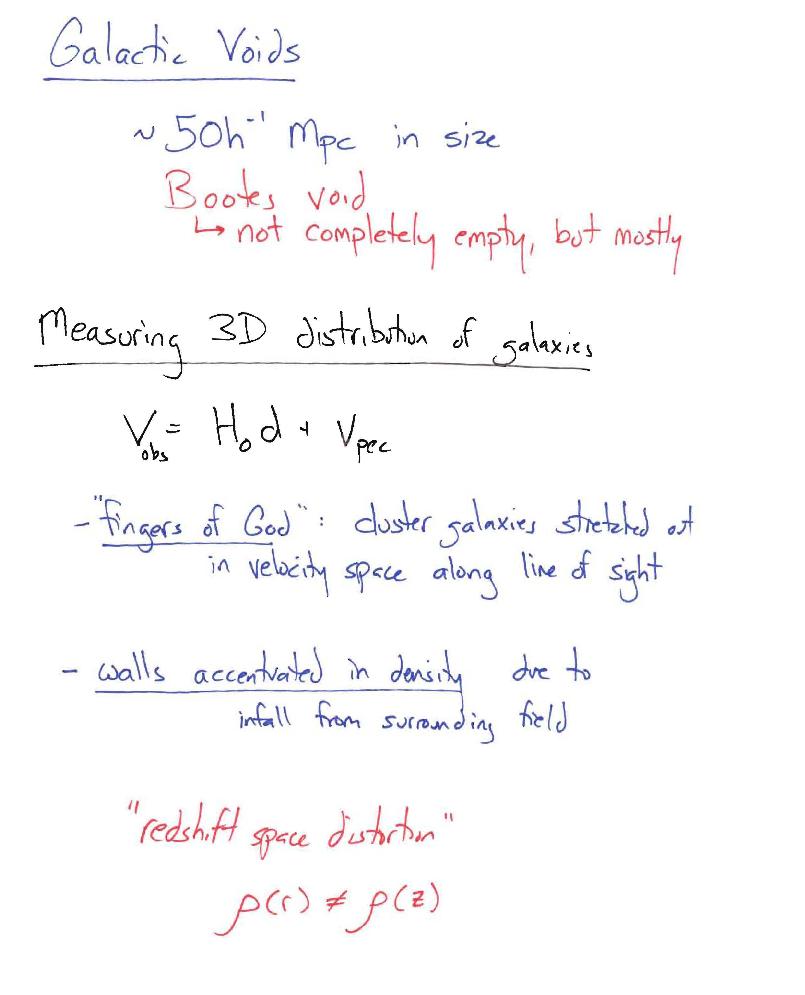 Galactic Voids
~ 50h⁻¹ Mpc in size
Bootes void
↳ not completely empty, but mostly
Measuring 3D distribution of galaxies
V_obs = H₀d + V_pec
- "fingers of God": cluster galaxies stretched out
in velocity space along line of sight
- walls accentuated in density due to
infall from surrounding field
"redshift space distortion"
ρ(r) ≠ ρ(z)